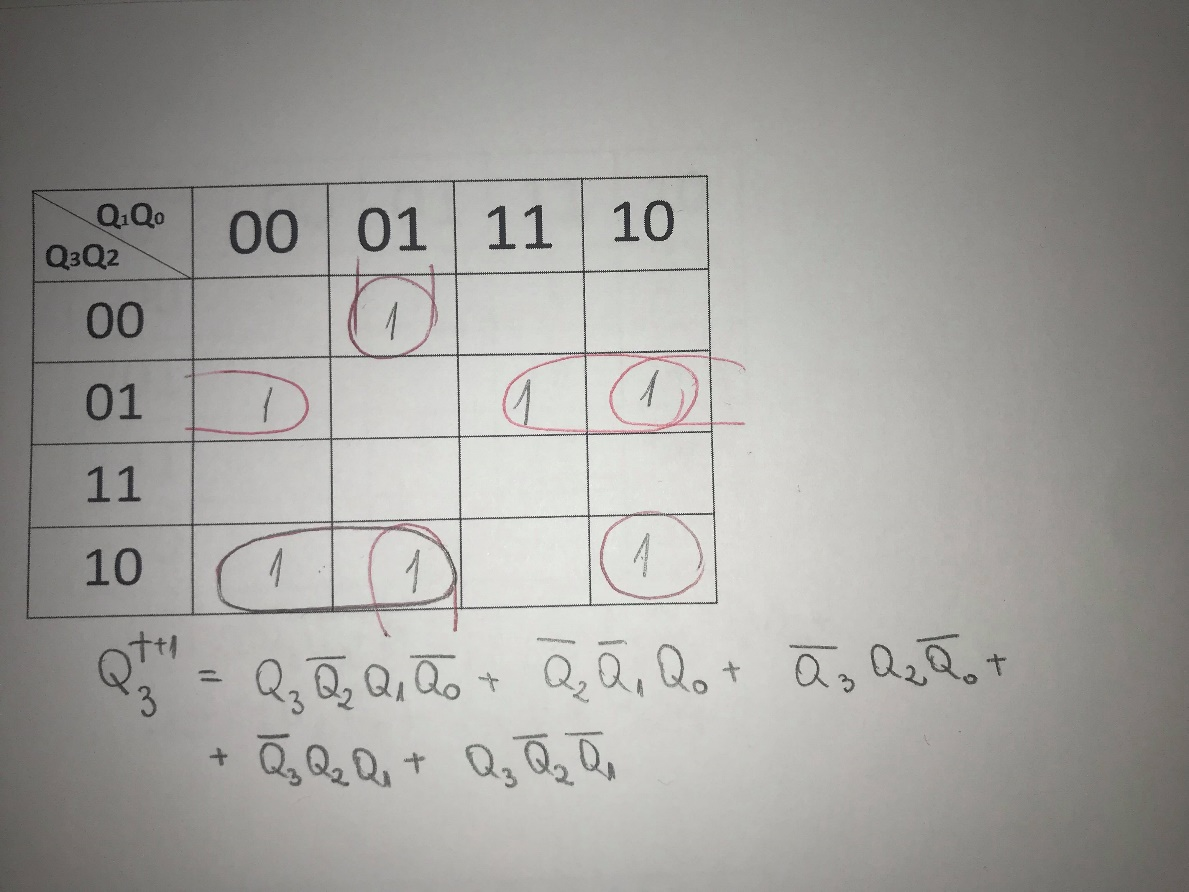 Q₁Q₀ 00 01 11 10
Q₃Q₂
00 1
01 1 1 1
11
10 1 1 1
Q₃ᵗ⁺¹ = Q₃Q̅₂Q₁Q̅₀ + Q̅₂Q̅₁Q₀ + Q̅₃Q₂Q̅₀ +
+ Q̅₃Q₂Q₁ + Q₃Q̅₂Q̅₁